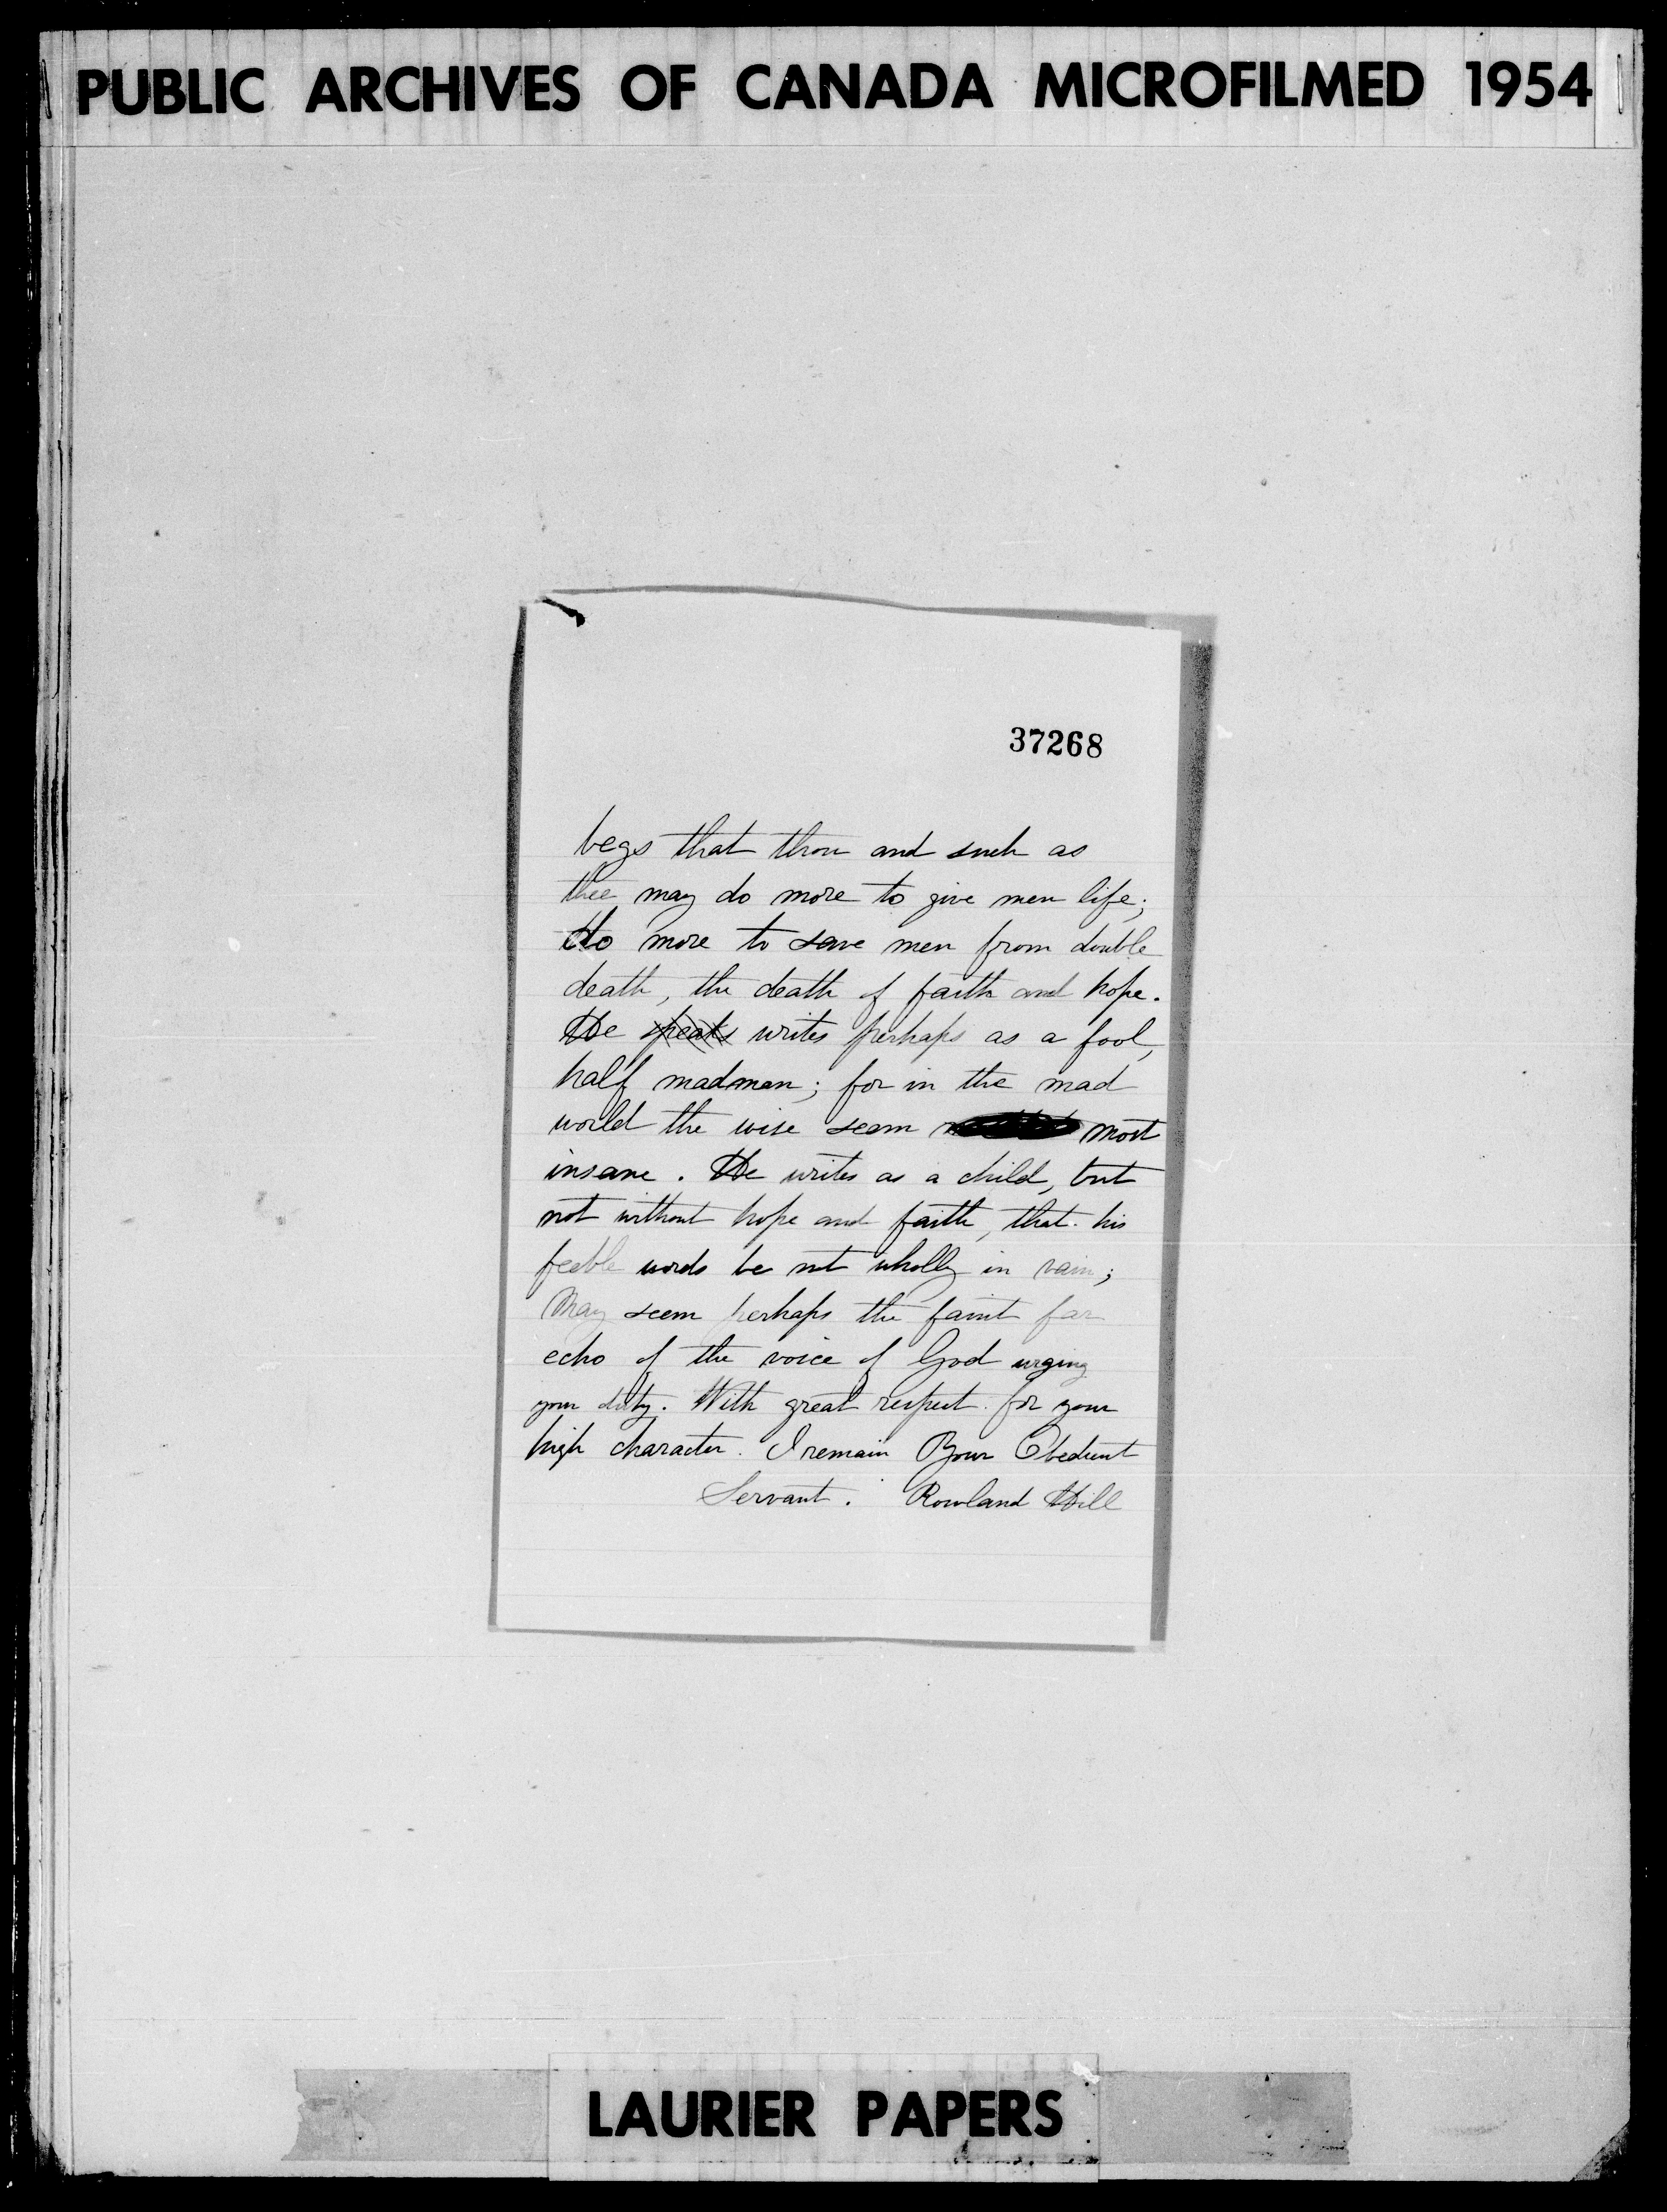 PUBLIC ARCHIVES OF CANADA MICROFILMED 1954
37268
begs that thou and such as
thee may do more to give men life;
do more to save men from double
death, the death of faith and hope.
He speaks writes perhaps as a fool,
half madman; for in the mad
world the wise seem most
insane. He writes as a child, but
not without hope and faith, that his
feeble words be not wholly in vain;
May seem perhaps the faint far
echo of the voice of God urging
your duty. With great respect for your
high character. I remain Your Obedient
Servant. Rowland Hill
LAURIER PAPERS